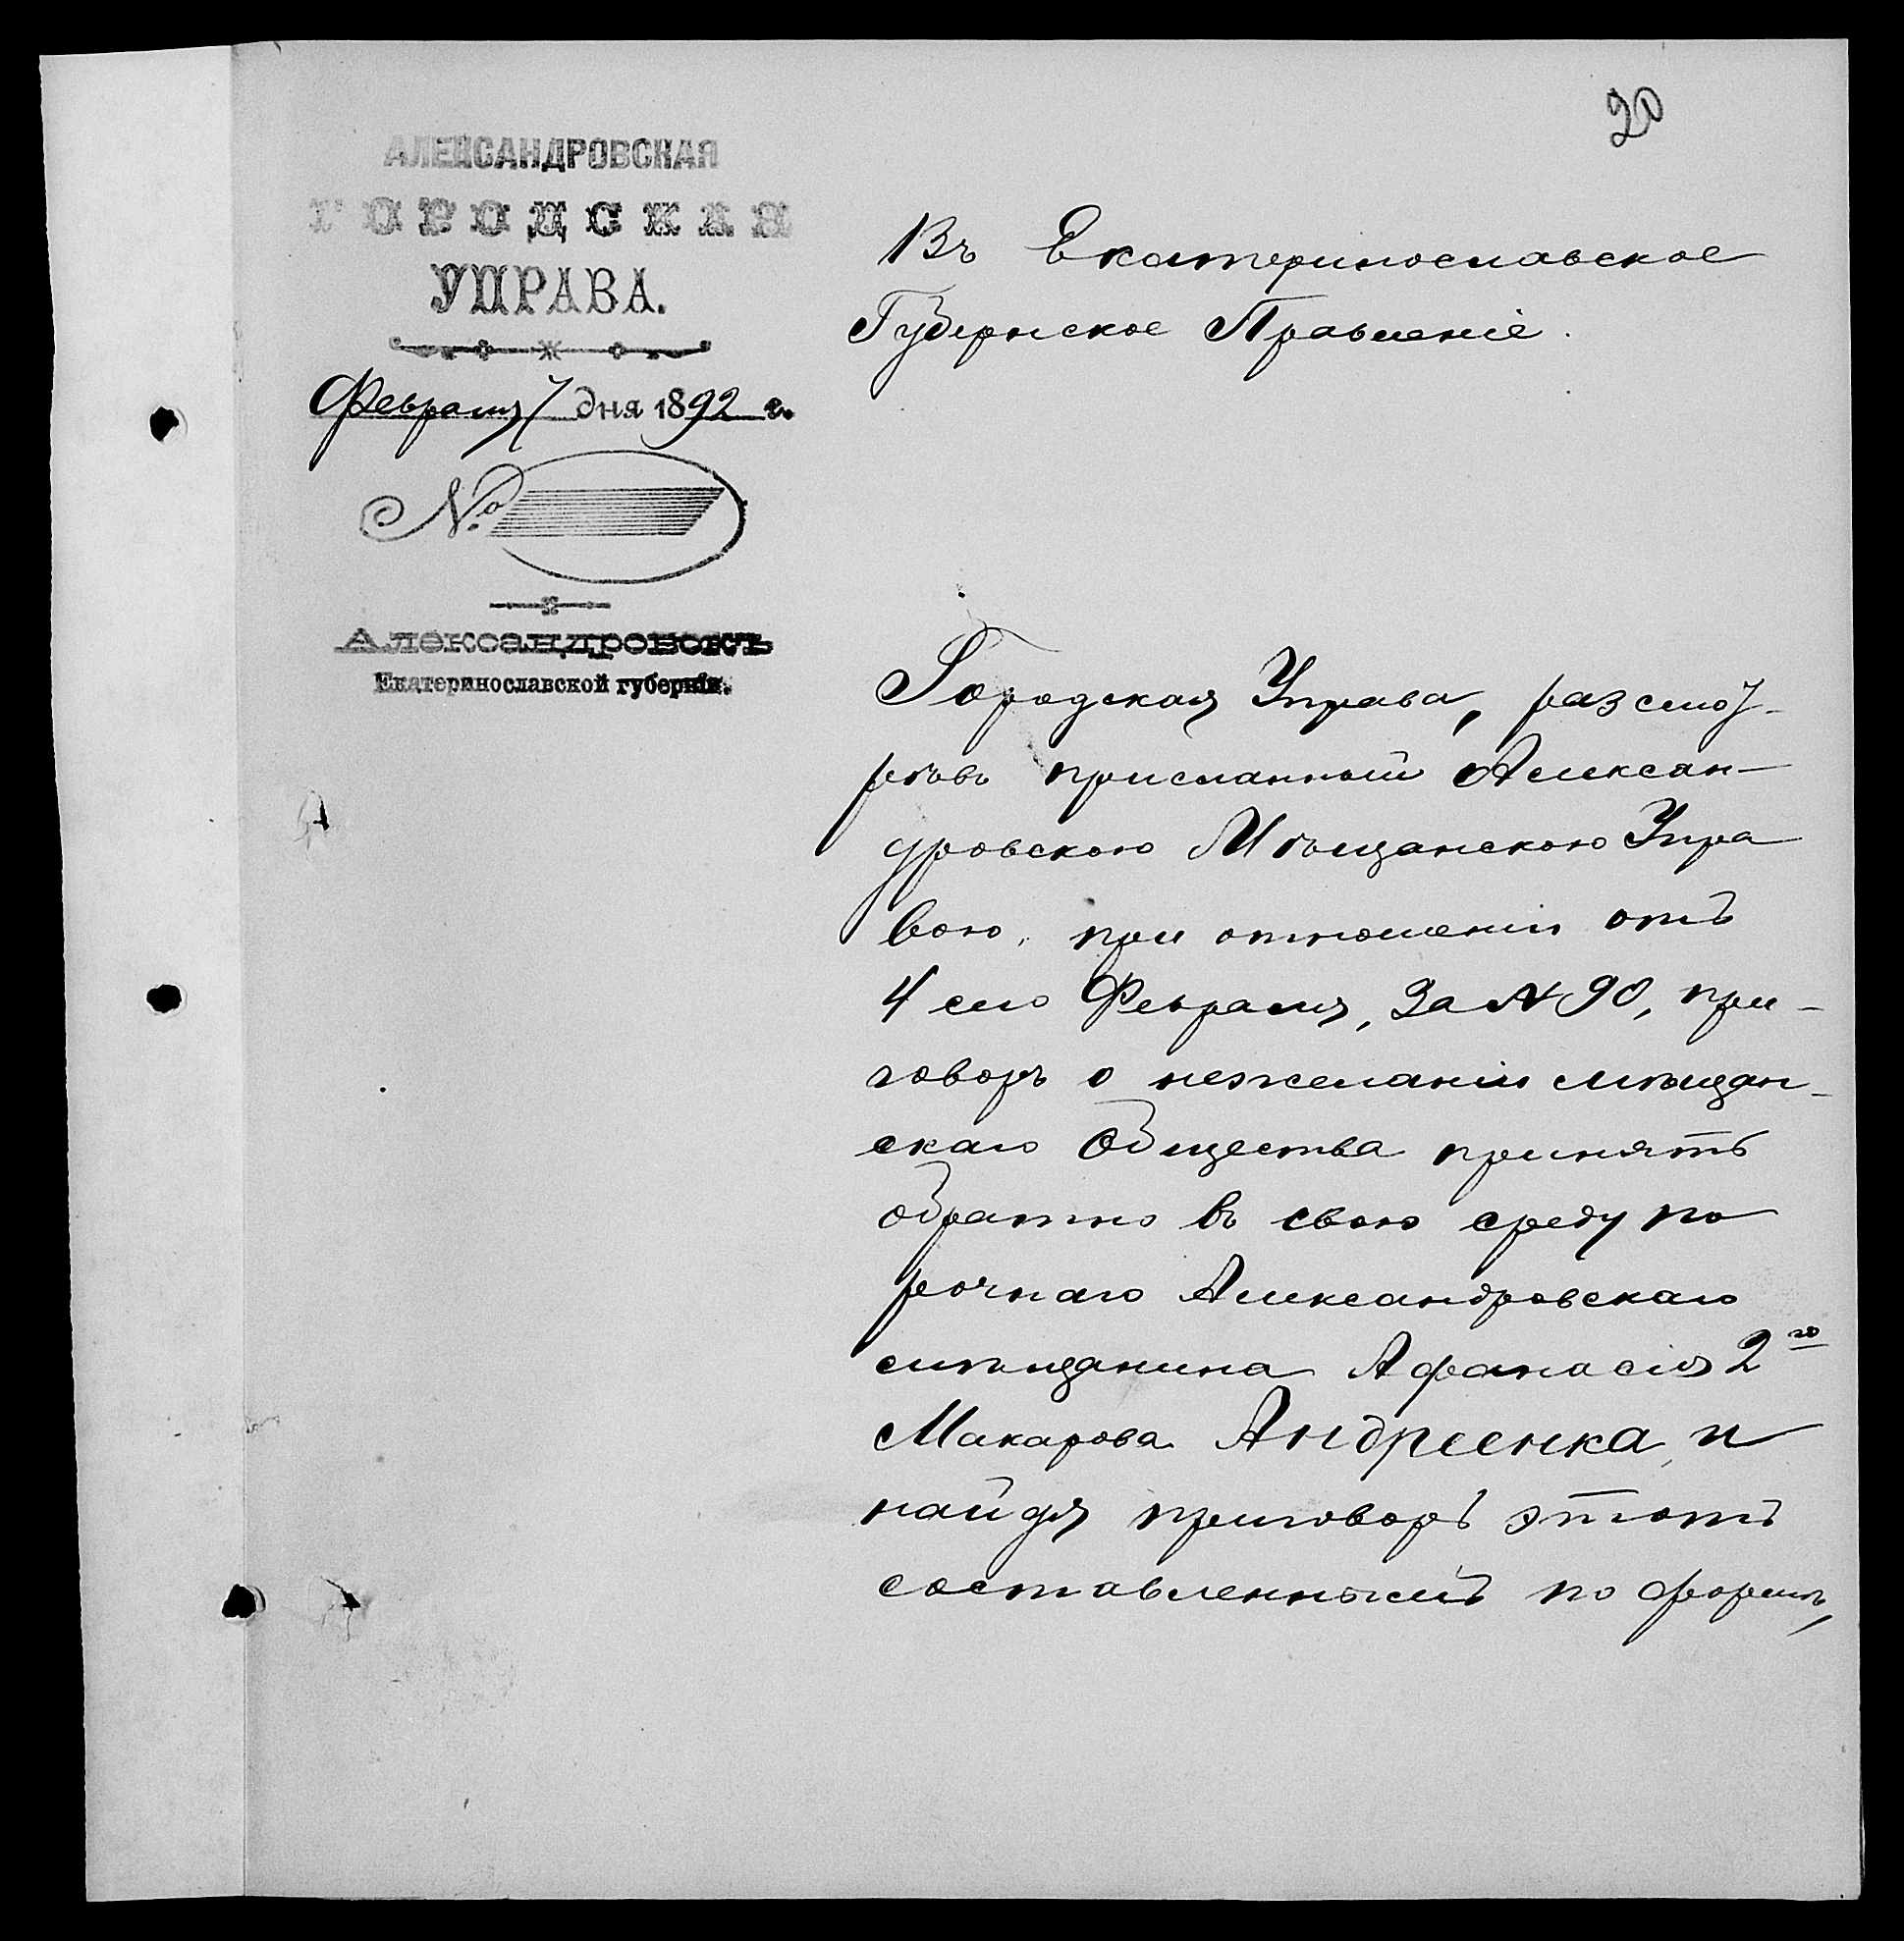 20
АЛЕКСАНДРОВСКАЯ
ГОРОДСКАЯ
УПРАВА.
Февраля 7 дня 1892 г.
№
Александровскъ
Екатеринославской губерніи.
Въ Екатеринославское
Губернское Правленіе.
Городская Управа, разсмот-
рѣвъ присланный Алексан-
дровскою Мѣщанскою Упра
вою, при отношеніи отъ
4 сего Февраля, за № 90, при-
говоръ о нежеланіи мѣщан-
скаго Общества принять
обратно въ свою среду по
рочнаго Александровскаго
мѣщанина Афанасія 2го
Макарова Андреенка, и
найдя приговоръ этотъ
составленнымъ по формѣ,